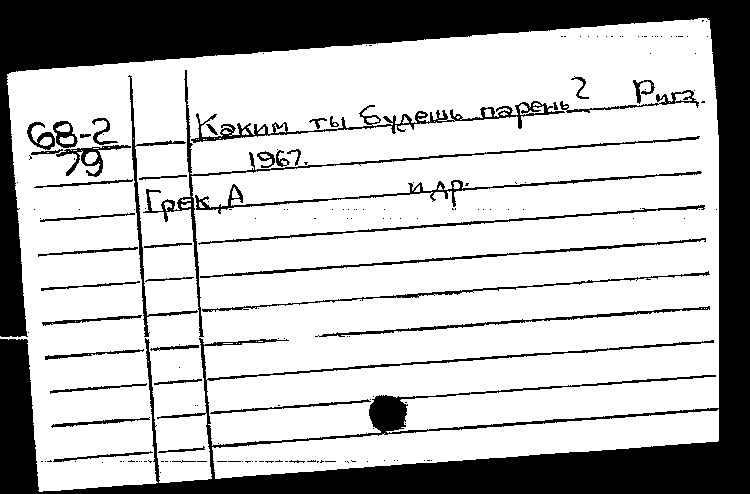 68-2
79
Каким ты будешь парень? Рига
1967.
Грек, А и др.